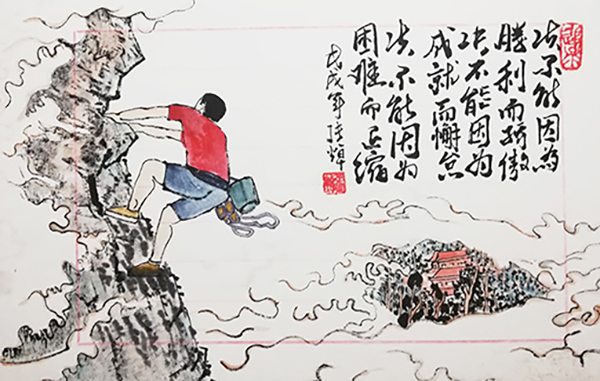 决不能因為
勝利而骄傲
决不能因为
成就而懈怠
决不能因为
困难而退缩
戊戌年